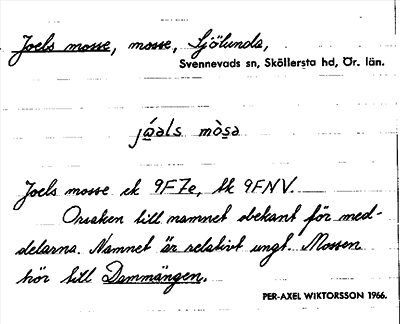 Joels mosse, mosse, Sjölunda,
Svennevads sn, Sköllersta hd, Ör. län.
jɷ́əls mòsa
Joels mosse ek 9F7e, tk 9FNV.
Orsaken till namnet obekant för med-
delarna. Namnet är relativt ungt. Mossen
hör till Dammängen.
PER-AXEL WIKTORSSON 1966.